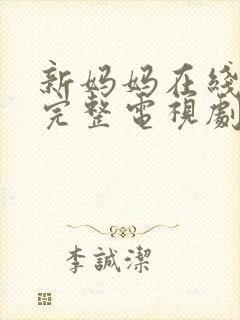 新妈妈在綫
完整電視劇
李誠潔